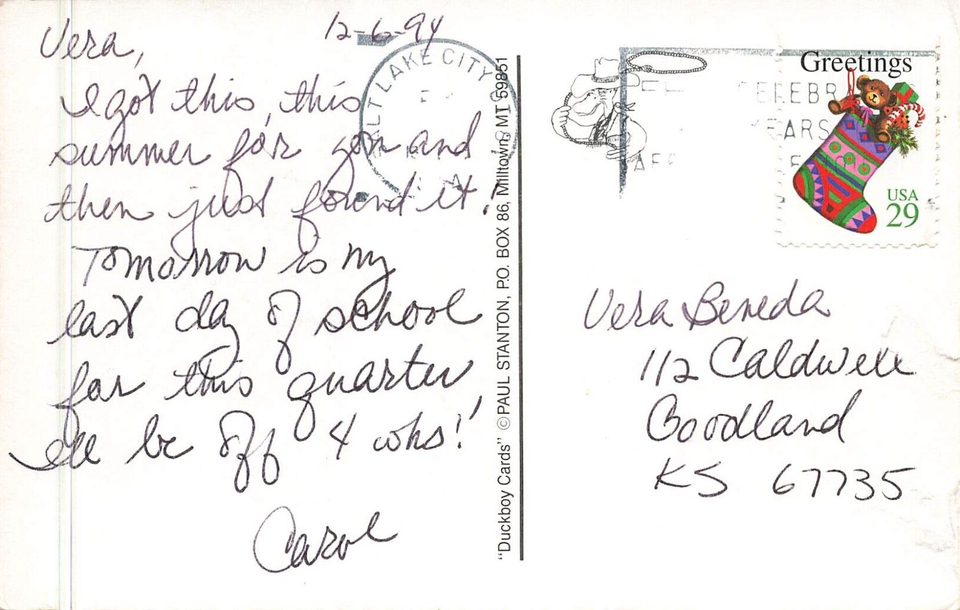 12-6-94
Vera,
I got this, this
summer for you and
then just found it.
Tomorrow is my
last day of school
for this quarter
I'll be off 4 wks!
Carol
"Duckboy Cards" © PAUL STANTON, P.O. BOX 86, Milltown, MT 59851
LT LAKE CITY
CELEBR
YEARS
Greetings
USA
29
Vera Beneda
112 Caldwell
Goodland
KS 67735